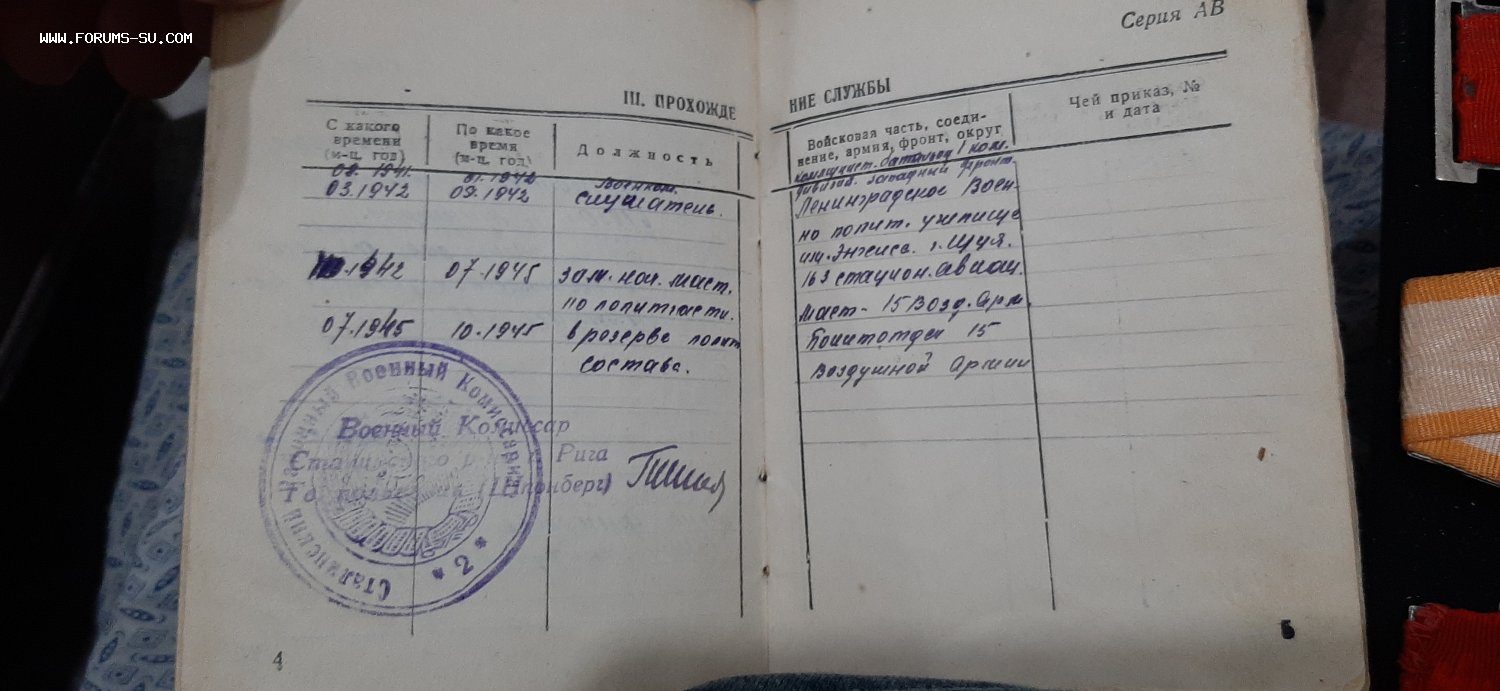 www.forums-su.com
Серия АВ
III. ПРОХОЖДЕНИЕ СЛУЖБЫ
С какого времени (м-ц, год)
По какое время (м-ц, год)
Должность
Войсковая часть, соеди-
нение, армия, фронт, округ
Чей приказ, №
и дата
08. 1941. 01. 1942 Военком. батальон 1 ком.
дивизия. Западный фронт.
03.1942 09.1942 слушатель. Ленинградское Воен-
но полит. училище
им. Энгельса. г. Шуя.
1942 07.1945 зам. нач. маст. 163 стацион. авиац.
по политчасти. маст- 15 Возд. Арм.
07.1945 10.1945 в резерве полит Политотдел 15
состава. Воздушной Армии
Военный Комиссар
Сталинского Рига
(Шпонберг)
Сталинский Районный Военный Комиссариат
* 2 *
4
5